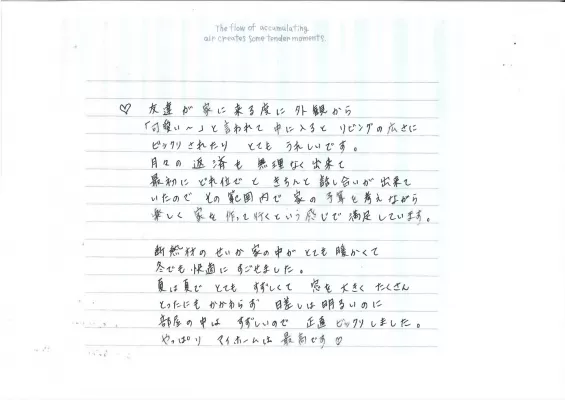 The flow of accumulating
air creates some tender moments.
♡ 友達が家に来る度に外観から
「可愛い〜」と言われて中に入ると リビングの広さに
ビックリされたり とてもうれしいです。
月々の返済も無理なく出来て
最初にどれ位でと きちんと話し合いが出来て
いたので その範囲内で 家の予算を考えながら
楽しく 家を作って行くという感じで満足しています。
断熱材のせいか家の中がとても暖かくて
冬でも快適にすごせました。
夏は夏で とても すずしくて 窓を大きく たくさん
とったにもかかわらず 日差しは明るいのに
部屋の中は すずしいので 正直ビックリしました。
やっぱり マイホームは最高です♡